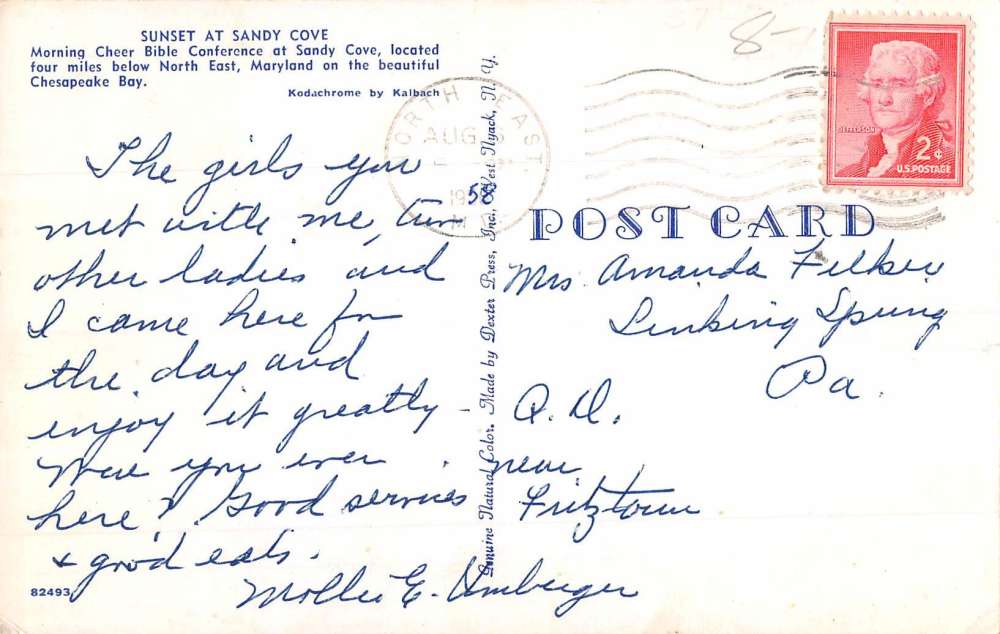 SUNSET AT SANDY COVE
Morning Cheer Bible Conference at Sandy Cove, located
four miles below North East, Maryland on the beautiful
Chesapeake Bay.
Kodachrome by Kalbach
The girls you
met with me, two
other ladies and
I came here for
the day and
enjoy it greatly -
Were you ever
here? Good services
& good eats.
Mollie E. Umberger
82493
Genuine Natural Color. Made by Dexter Press, Inc., West Nyack, N. Y.
NORTH EAST
AUG
1958
M
8-
JEFFERSON
2¢
U.S. POSTAGE
POST CARD
Mrs Amanda
Sinking Spring
Pa.
R. D.
near
Fritztown